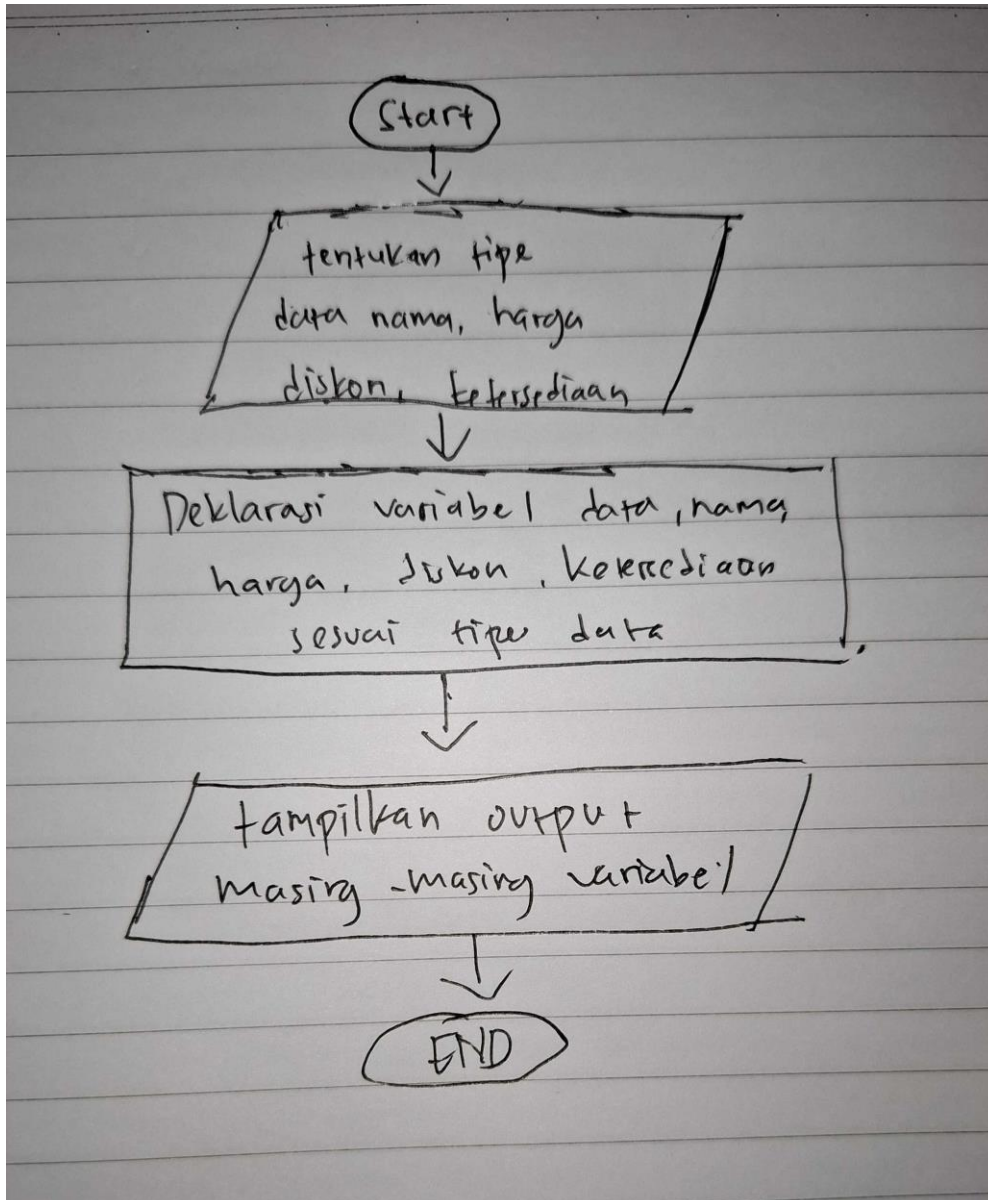 Start
tentukan tipe
data nama, harga
diskon, ketersediaan
Deklarasi variabel data, nama,
harga, diskon, ketersediaan
sesuai tipe data
tampilkan output
masing-masing variabel
END